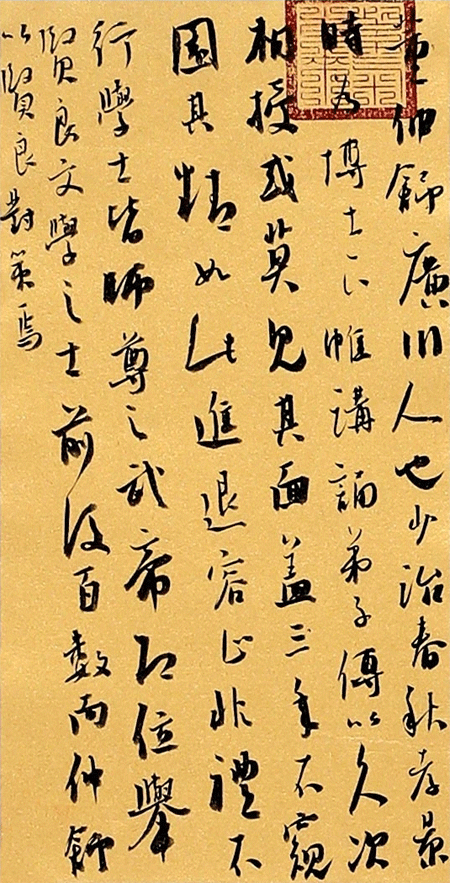 董仲舒廣川人也少治春秋孝景
時為博士下帷講誦弟子傳以久次
相授或莫見其面蓋三年不窺
園其精如此進退容止非禮不
行學士皆師尊之武帝即位舉
賢良文學之士前後百數而仲舒
以賢良對策焉